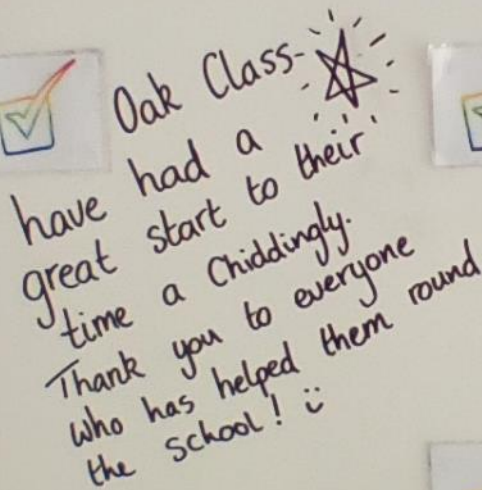 Oak Class-
have had a
great start to their
time a Chiddingly.
Thank you to everyone
who has helped them round
the school! :)